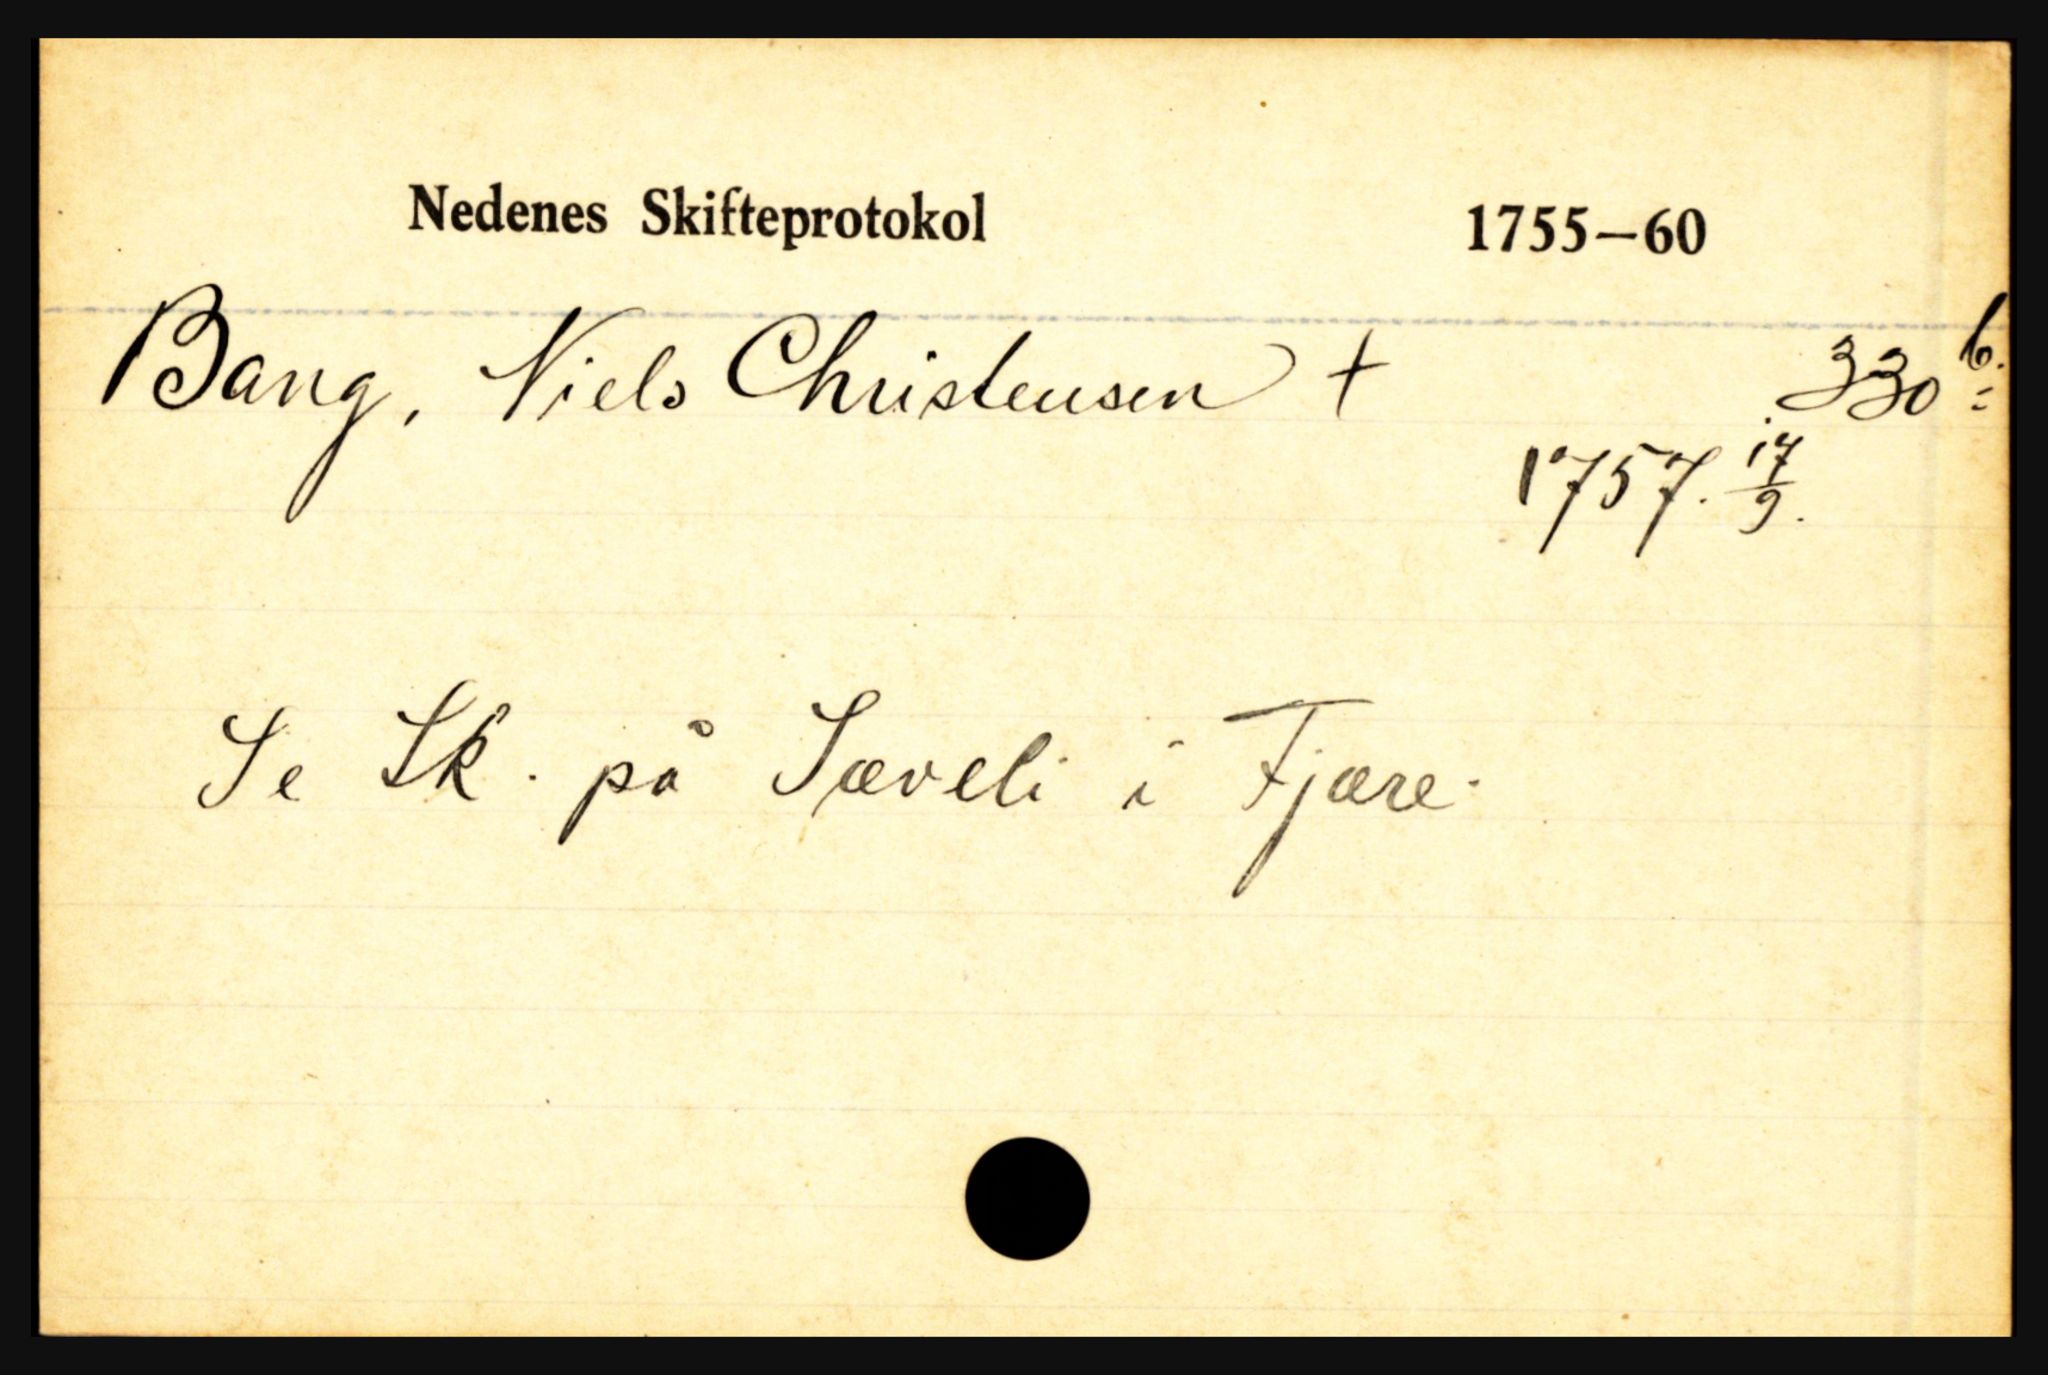 Nedenes Skifteprotokol 1755–60
Bang, Niels Christensen + 330 b.
1757. 17/9.
Se Sk. på Sæveli i Fjære.